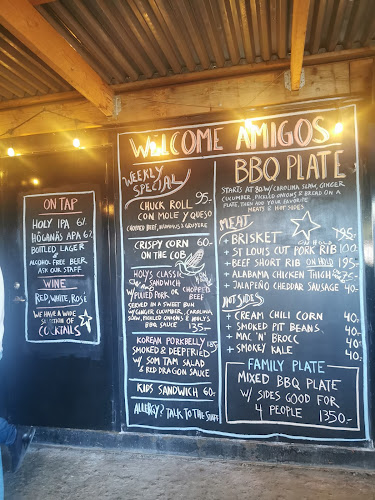 WELCOME AMIGOS
ON TAP
HOLY IPA 6%
HÖGANÄS APA 6%
BOTTLED LAGER
&
ALCOHOL FREE BEER,
ASK OUR STAFF
WINE
RED, WHITE, ROSE
WE HAVE A WIDE
SELECTION OF
COCKTAILS
WEEKLY
SPECIAL
CHUCK ROLL 95:-
CON MOLE Y QUESO
CHOPPED BEEF, & GRUYERE
CRISPY CORN 60
ON THE COB
HOLY'S CLASSIC
SANDWICH
W/ PULLED PORK OR CHOPPED
BEEF
SERVED IN A SWEET BUN
W/GINGER CUCUMBER, CAROLINA
SLAW, PICKLED ONIONS & HOLY'S
BBQ SAUCE 135:-
KOREAN PORKBELLY 185
SMOKED & DEEPFRIED
W/ SOM TAM SALAD
& RED DRAGON SAUCE
KIDS SANDWICH 60:-
ALLERGY? TALK TO THE STAFF
BBQ PLATE
STARTS AT 80 W/ CAROLINA SLAW, GINGER
CUCUMBER, PICKLED ONIONS & BREAD ON A
PLATE, THEN ADD YOUR FAVORITE
MEATS & HOT SIDES
MEAT
+ BRISKET 195:-
+ ST LOUIS CUT PORK RIB 100:-
+ BEEF SHORT RIB 195:-
+ ALABAMA CHICKEN THIGH 75:-
+ JALAPEÑO CHEDDAR SAUSAGE 40:-
HOT SIDES
+ CREAM CHILI CORN 40:-
+ SMOKED PIT BEANS 40:-
+ MAC 'N' BROCC 40:-
+ SMOKEY KALE 40:-
FAMILY PLATE
MIXED BBQ PLATE
W/ SIDES GOOD FOR
4 PEOPLE 1350:-